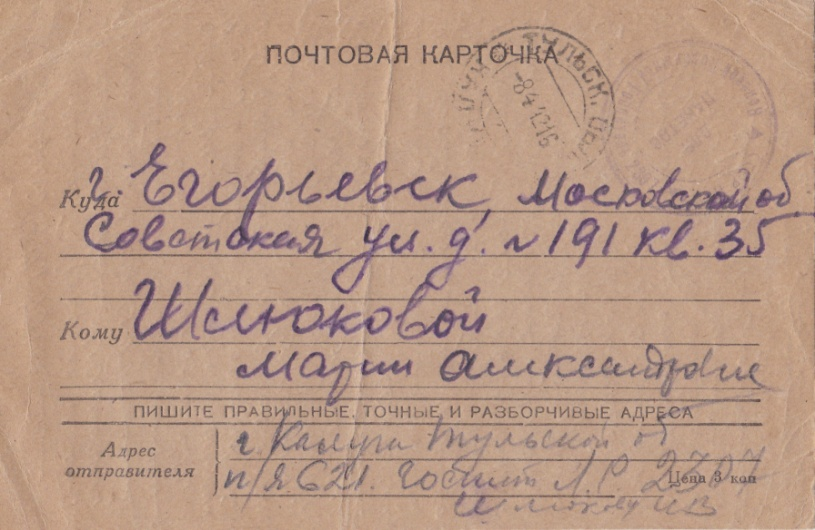 ПОЧТОВАЯ КАРТОЧКА
КАЛУГА ТУЛЬСК. ОБЛ.
Куда г. Егорьевск, Московской об
Советская ул. д. № 191 кв. 35
Кому Шлюковой
Марии Александровне
ПИШИТЕ ПРАВИЛЬНЫЕ, ТОЧНЫЕ И РАЗБОРЧИВЫЕ АДРЕСА
Адрес отправителя
г. Калуга Тульской об
п/я 621. Госпит Л.Р 2307
Цена 3 коп